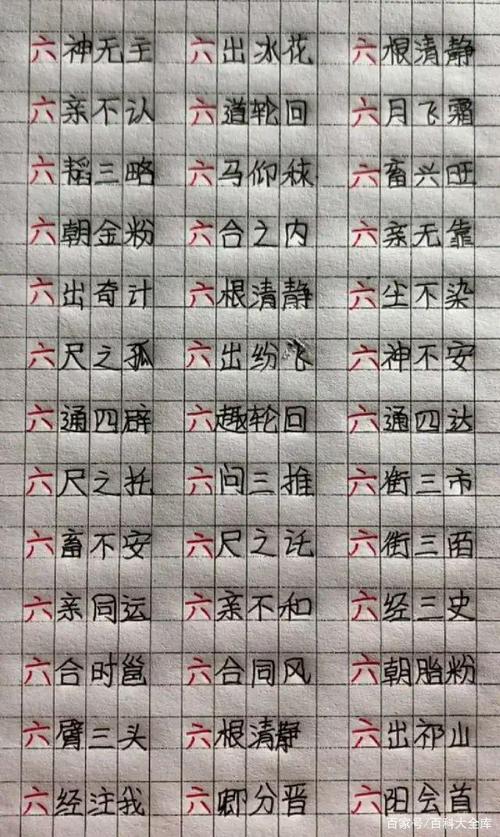 六神无主 六出冰花 六根清静
六亲不认 六道轮回 六月飞霜
六韬三略 六马仰秣 六畜兴旺
六朝金粉 六合之内 六亲无靠
六出奇计 六根清静 六尘不染
六尺之孤 六出纷飞 六神不安
六通四辟 六趣轮回 六通四达
六尺之托 六问三推 六街三市
六畜不安 六尺之讬 六街三陌
六亲同运 六亲不和 六经三史
六合时邕 六合同风 六朝脂粉
六臂三头 六根清静 六出祁山
六经注我 六卿分晋 六阳会首
百家号/百科大全库